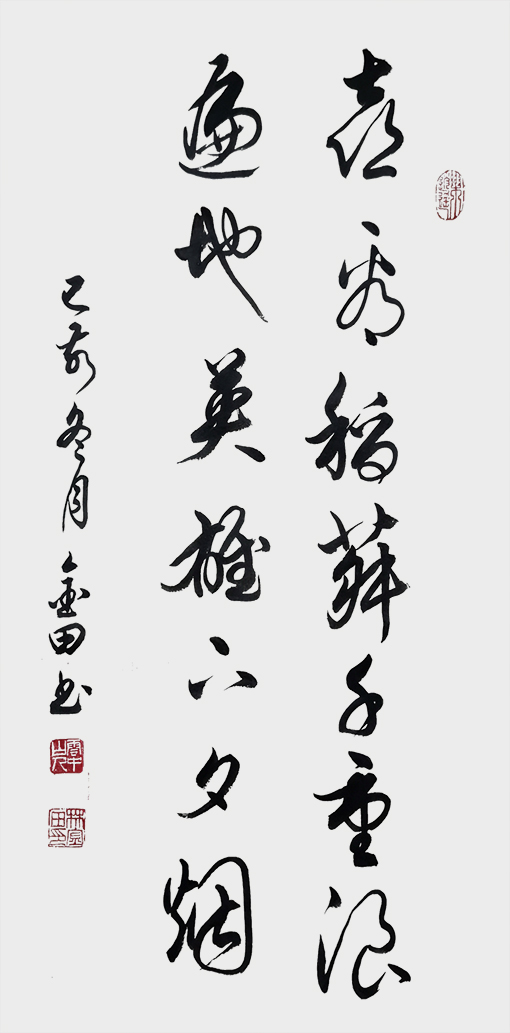 喜看稻菽千重浪
遍地英雄下夕烟
己亥冬月金田书
林金田印